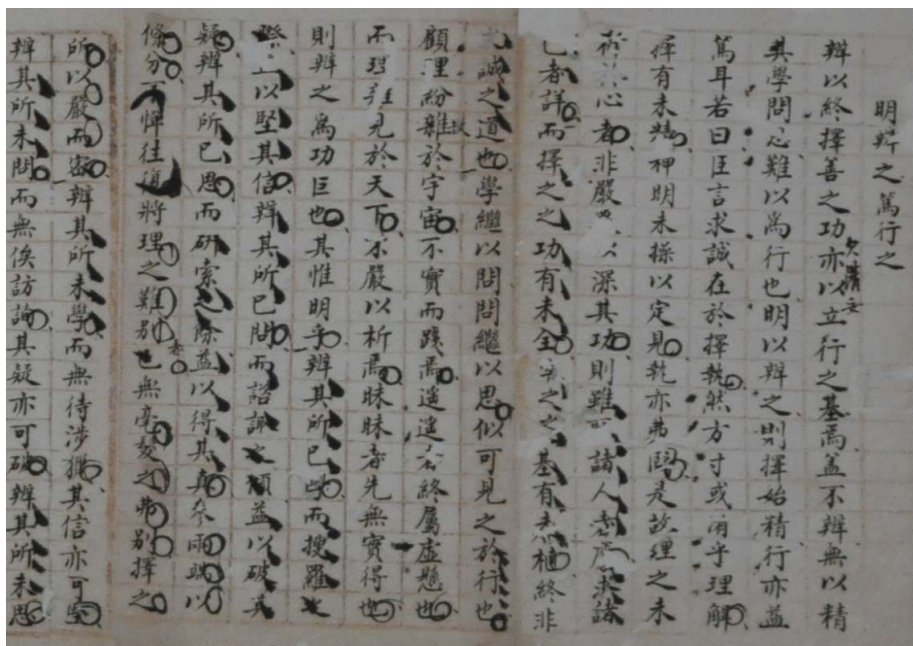 明辨之篤行之
辨以終擇善之功亦以立行之基焉蓋不辨無以精
其學問難以為行也明以辨之則擇始精行亦益
篤耳若曰臣言求誠在於擇執然方寸或闇乎理解
擇有未精神明未操以定見執亦弗固是故理之未
析於心者非嚴深其功則雖諸人者求諸
己者詳而擇之之功有未全之之基有未植終非
誠之道也學繼以問問繼以思似可見之於行也
顧理紛雜於宇宙不實而踐焉遙遙者終屬虛懸也
而理雜見於天下不嚴以析焉昧昧者先無實得也
則辨之為功巨也其惟明乎辨其所已學而搜羅之
際益以堅其信辨其所已問而諮諏之頃益以破其
疑辨其所已思而研索之餘益以得其真參兩端以
條分不憚往復將理之難別也無毫髮之弗別擇之
所以嚴而密辨其所未學而無待涉獵其信亦可堅
辨其所未問而無俟訪詢其疑亦可破辨其所未思